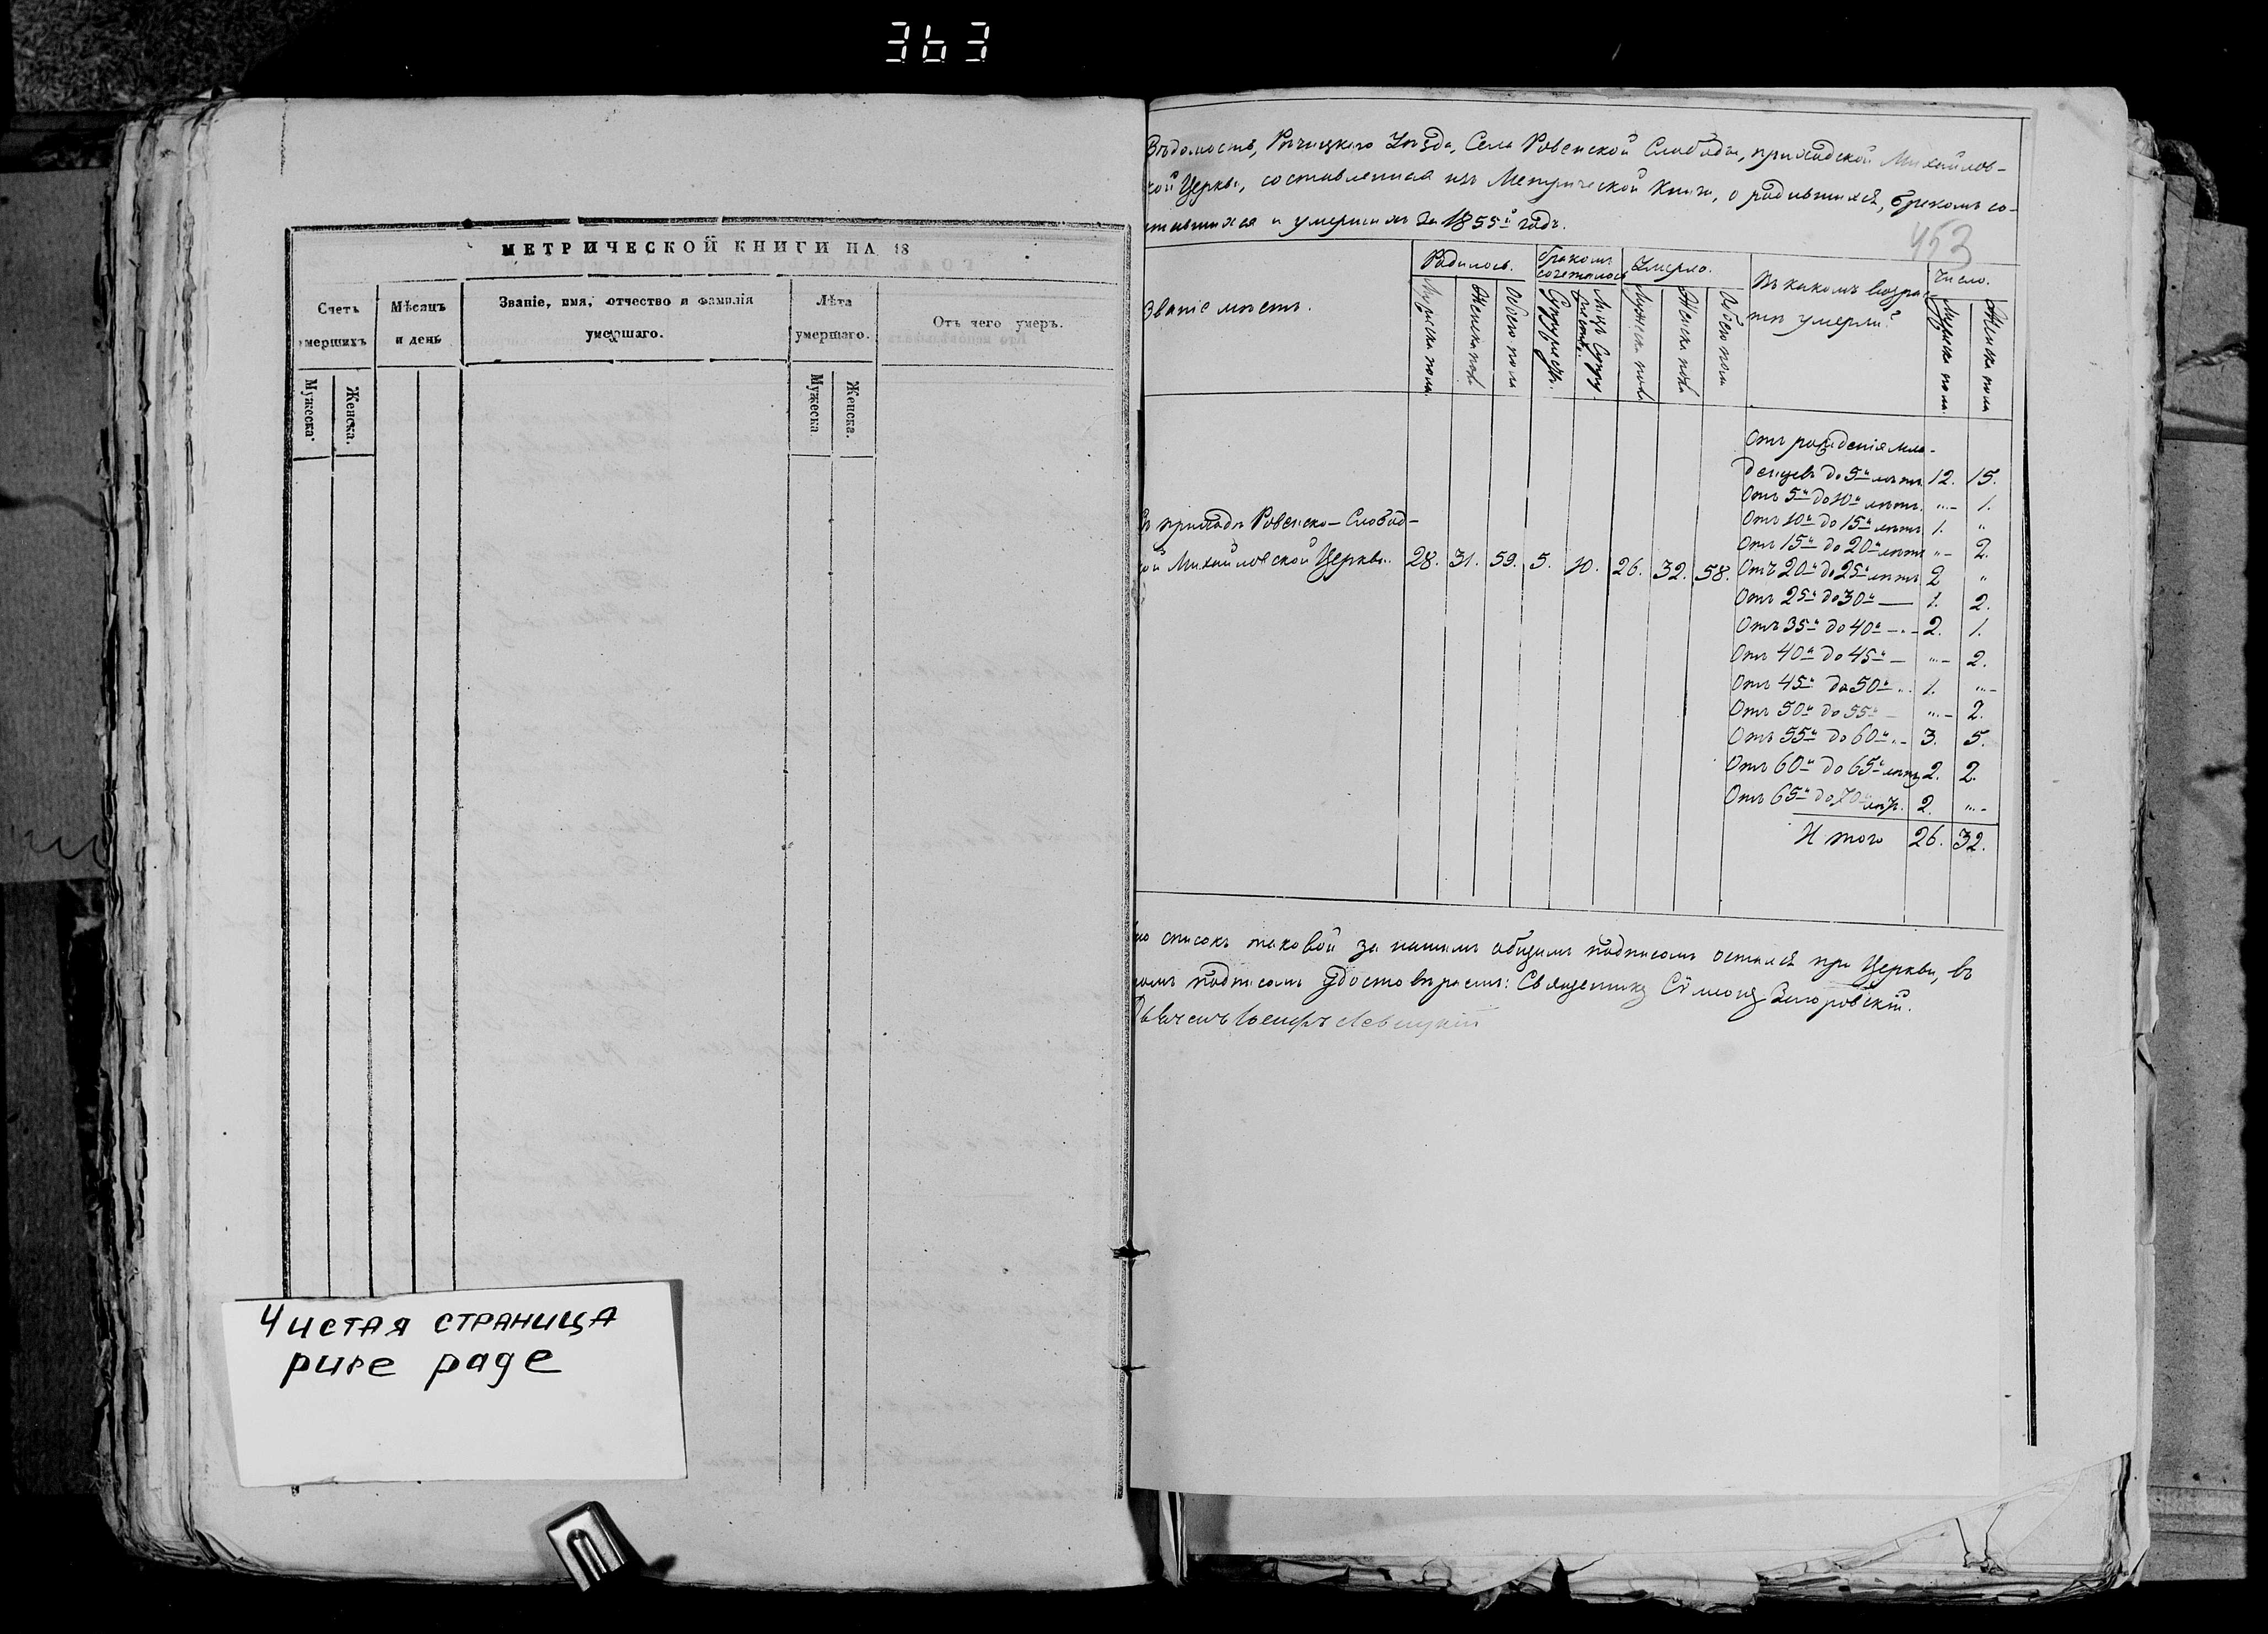 363
МЕТРИЧЕСКОЙ КНИГИ НА 18
Счетъ умершихъ
Мужеска
Женска.
Мѣсяцъ и день
Званіе, имя, отчество и фамилія умершаго.
Лѣта умершаго.
Мужеска
Женска.
Отъ чего умеръ.
Чистая страница
pure page
Вѣдомость, Рѣчицкаго Уѣзда, Села Ровенской Слободы, приходской Михайлов-
кой Церкви, составленная изъ Метрической Книги, о родившихся, бракомъ со-
тавшихся и умершихъ за 1855й годъ.
453
Званіе мѣстъ.
Родилось.
Мужеска пола
Женска пола
Обоего пола
Бракомъ сочеталось
Супружествъ.
Лицъ Супру
Умерло.
Мужеска пола
Женска пола
Обоего пола
Въ какомъ возра-
тѣ умерли?
Число.
Мужеска пола.
Женска пола
Отъ рожденія мла-
денцевъ до 5и лѣтъ 12. 15.
Отъ 5и до 10и лѣтъ. "- 1.
Отъ 10и до 15и лѣтъ 1. "
Отъ 15и до 20и лѣтъ "- 2.
Отъ 20и до 25и лѣтъ 2 "
Отъ 25и до 30и — 1. 2.
Отъ 35и до 40и - 2. 1.
Отъ 40и до 45и - "- 2.
Отъ 45и до 50и 1. "-
Отъ 50и до 55и - "- 2.
Отъ 55и до 60и - 3. 5.
Отъ 60и до 65и лѣтъ 2. 2.
Отъ 65и до 70и лѣтъ. 2. "-
И того 26. 32.
ъ приходѣ Ровенско-Слобод-
ой Михайловской Церкви. 28. 31. 59. 5. 10. 26. 32. 58.
то списокъ таковой за нашимъ общимъ подписомъ остался при Церкви, въ
омъ подписомъ удостовѣряемъ: Священникъ Сѵмеонъ
Левицкій